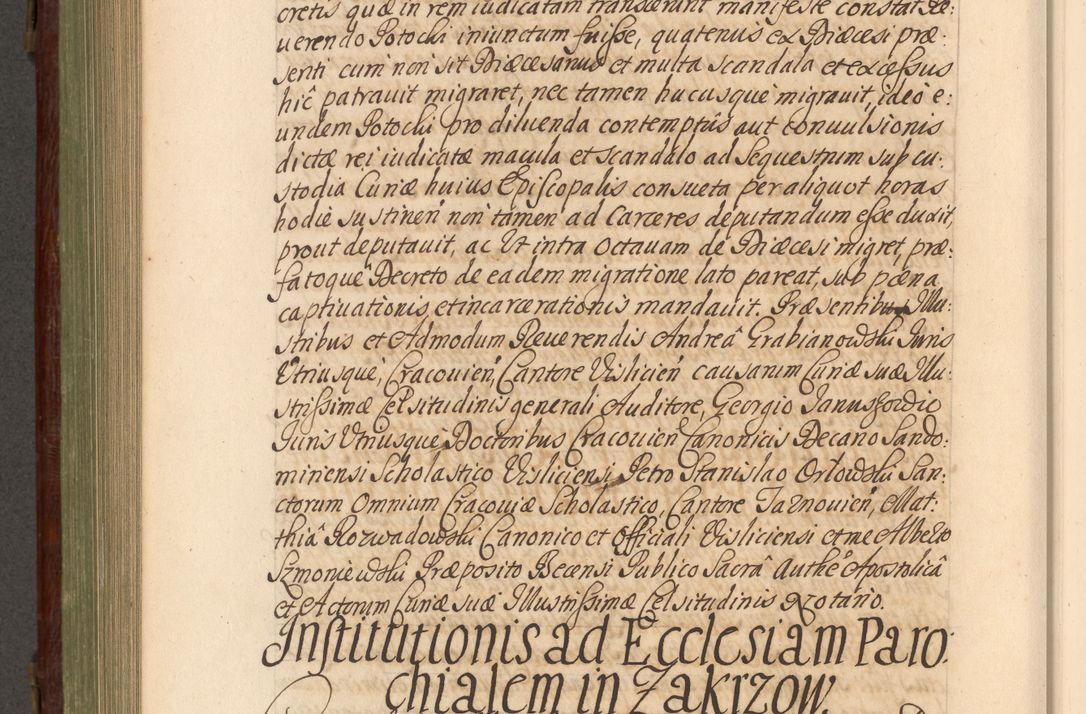 cretis quæ in rem iudicatam transierunt manifeste constat Re:
uerendo Potocki iniunctum fuisse, quatenus ex Diæcesi præ:
senti cum non sit Diæcesanus et multa scandala et excessus
hic patrauit migraret, nec tamen hucusque migrauit, ideo e:
undem Potocki pro diluenda contemptûs aut conuulsionis
dictæ rei iudicatæ macula et scandalo ad Sequestrum sub cu:
stodia Curiæ huius Episcopalis consueta per aliquot horas
hodiè sustineri non tamen ad Carceres deputandum esse duxit,
prout deputauit, ac Ut intra Octauam de Diæcesi migret, præ:
fatoque Decreto de eadem migratione lato pareat, sub pœna
captiuationis et incarcerationis mandauit. Præsentibus Illu:
stribus et Admodum Reuerendis Andreâ Grabianowski Iuris
Utriusque, Cracouień, Cantore Uislicień causarum Curiæ suæ Illu:
strissimæ Celsitudinis generali Auditore, Georgio Ianuszowic
Iuris Utriusque Doctoribus Cracouień Canonicis Decano Sando:
miriensi Scholastico Uisliciensi, Petro Stanislao Orłowski San:
ctorum Omnium Cracouiæ Scholastico, Cantore Tarnouień, Mat:
thiâ Rozwadowski Canonico et Officiali Uisliciensi et me Alberto
Szmoniewski Præposito Becensi Publico Sacrâ Authẽ Apostolicâ
et Actorum Curiæ suæ Illustrissimæ Celsitudinis Notario.
Institutionis ad Ecclesiam Paro:
chialem in Zakrzow.